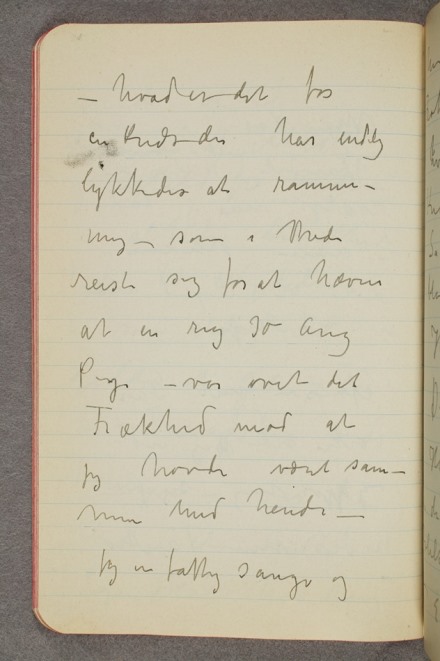 – hvad er det for
en Kreds der har endlig
lykkedes at ramme
mig – som i Vrede
reiste sig for at hævne
at en rig 30 Aarig
Pige – var øvet det
Frækhed mod at
jeg havde været sam–
men med hende –
jeg en fattig Sanger og